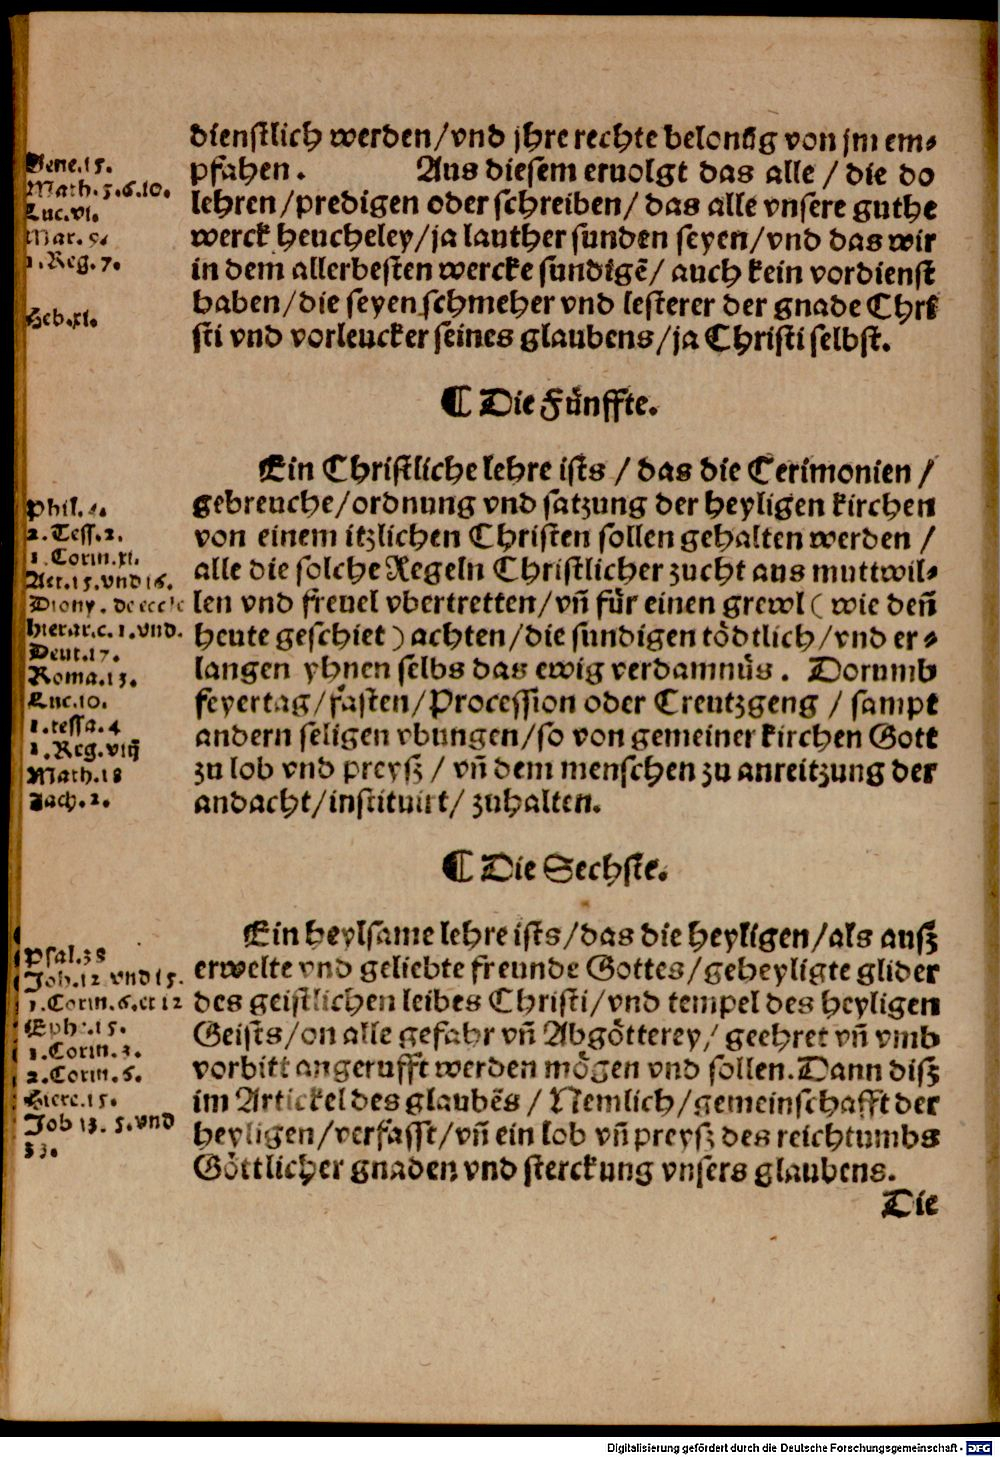 dienstlich werden/vnd jhre rechte belonūg von jm em⸗
pfahen. Aus diesem eruolgt das alle / die do
lehren/predigen oder schreiben/ das alle vnsere guthe
werck heucheley/ja lauther sunden seyen/vnd das wir
in dem allerbesten wercke sundigē/ auch kein vordienst
haben/die seyen schmeher vnd lesterer der gnade Chri
sti vnd vorleucker seines glaubens/ja Christi selbst.
Gene.15.
Math.5.6.10.
Luc.vi.
Mar.9.
1.Reg.7.
Heb.xi.
¶ Die Fünffte.
Ein Christliche lehre ists / das die Cerimonien /
gebreuche/ordnung vnd satzung der heyligen kirchen
von einem itzlichen Christen sollen gehalten werden /
alle die solche Regeln Christlicher zucht aus muttwil⸗
len vnd freuel vbertretten/vñ für einen grewl ( wie deñ
heute geschiet ) achten/die sundigen tödtlich/vnd er⸗
langen yhnen selbs das ewig verdamnüs. Dorumb
feyertag/fasten/Procession oder Creutzgeng / sampt
andern seligen vbungen/so von gemeiner kirchen Gott
zu lob vnd preysz / vñ dem menschen zu anreitzung der
andacht/instituirt/ zuhalten.
Phil.4.
2.Tess.2.
1.Corin.xi.
Act.15.vnd 16.
Diony. de eccle
hierar.c.1.vnd.
Deut.17.
Roma.13.
Luc.10.
1.tessa.4
1.Reg.viij
Math.18
Zach.2.
¶ Die Sechste.
Ein heylsame lehre ists/das die heyligen/als ausz
erwelte vnd geliebte freunde Gottes/geheyligte glider
des geistlichen leibes Christi/vnd tempel des heyligen
Geists/on alle gefahr vñ Abgötterey/ geehret vñ vmb
vorbitt angerufft werden mögen vnd sollen. Dann disz
im Artickel des glaubēs / Nemlich/gemeinschafft der
heyligen/verfasst/vñ ein lob vñ preysz des reichtumbs
Göttlicher gnaden vnd sterckung vnsers glaubens.
Psal.38
Joh.12 vnd 15.
1.Corin.6.et 12
Ephe.15.
1.Corin.3.
2.Corin.6.
Hiere.15.
Job 13. 5.vnd
33.
Die
Digitalisierung gefördert durch die Deutsche Forschungsgemeinschaft - DFG